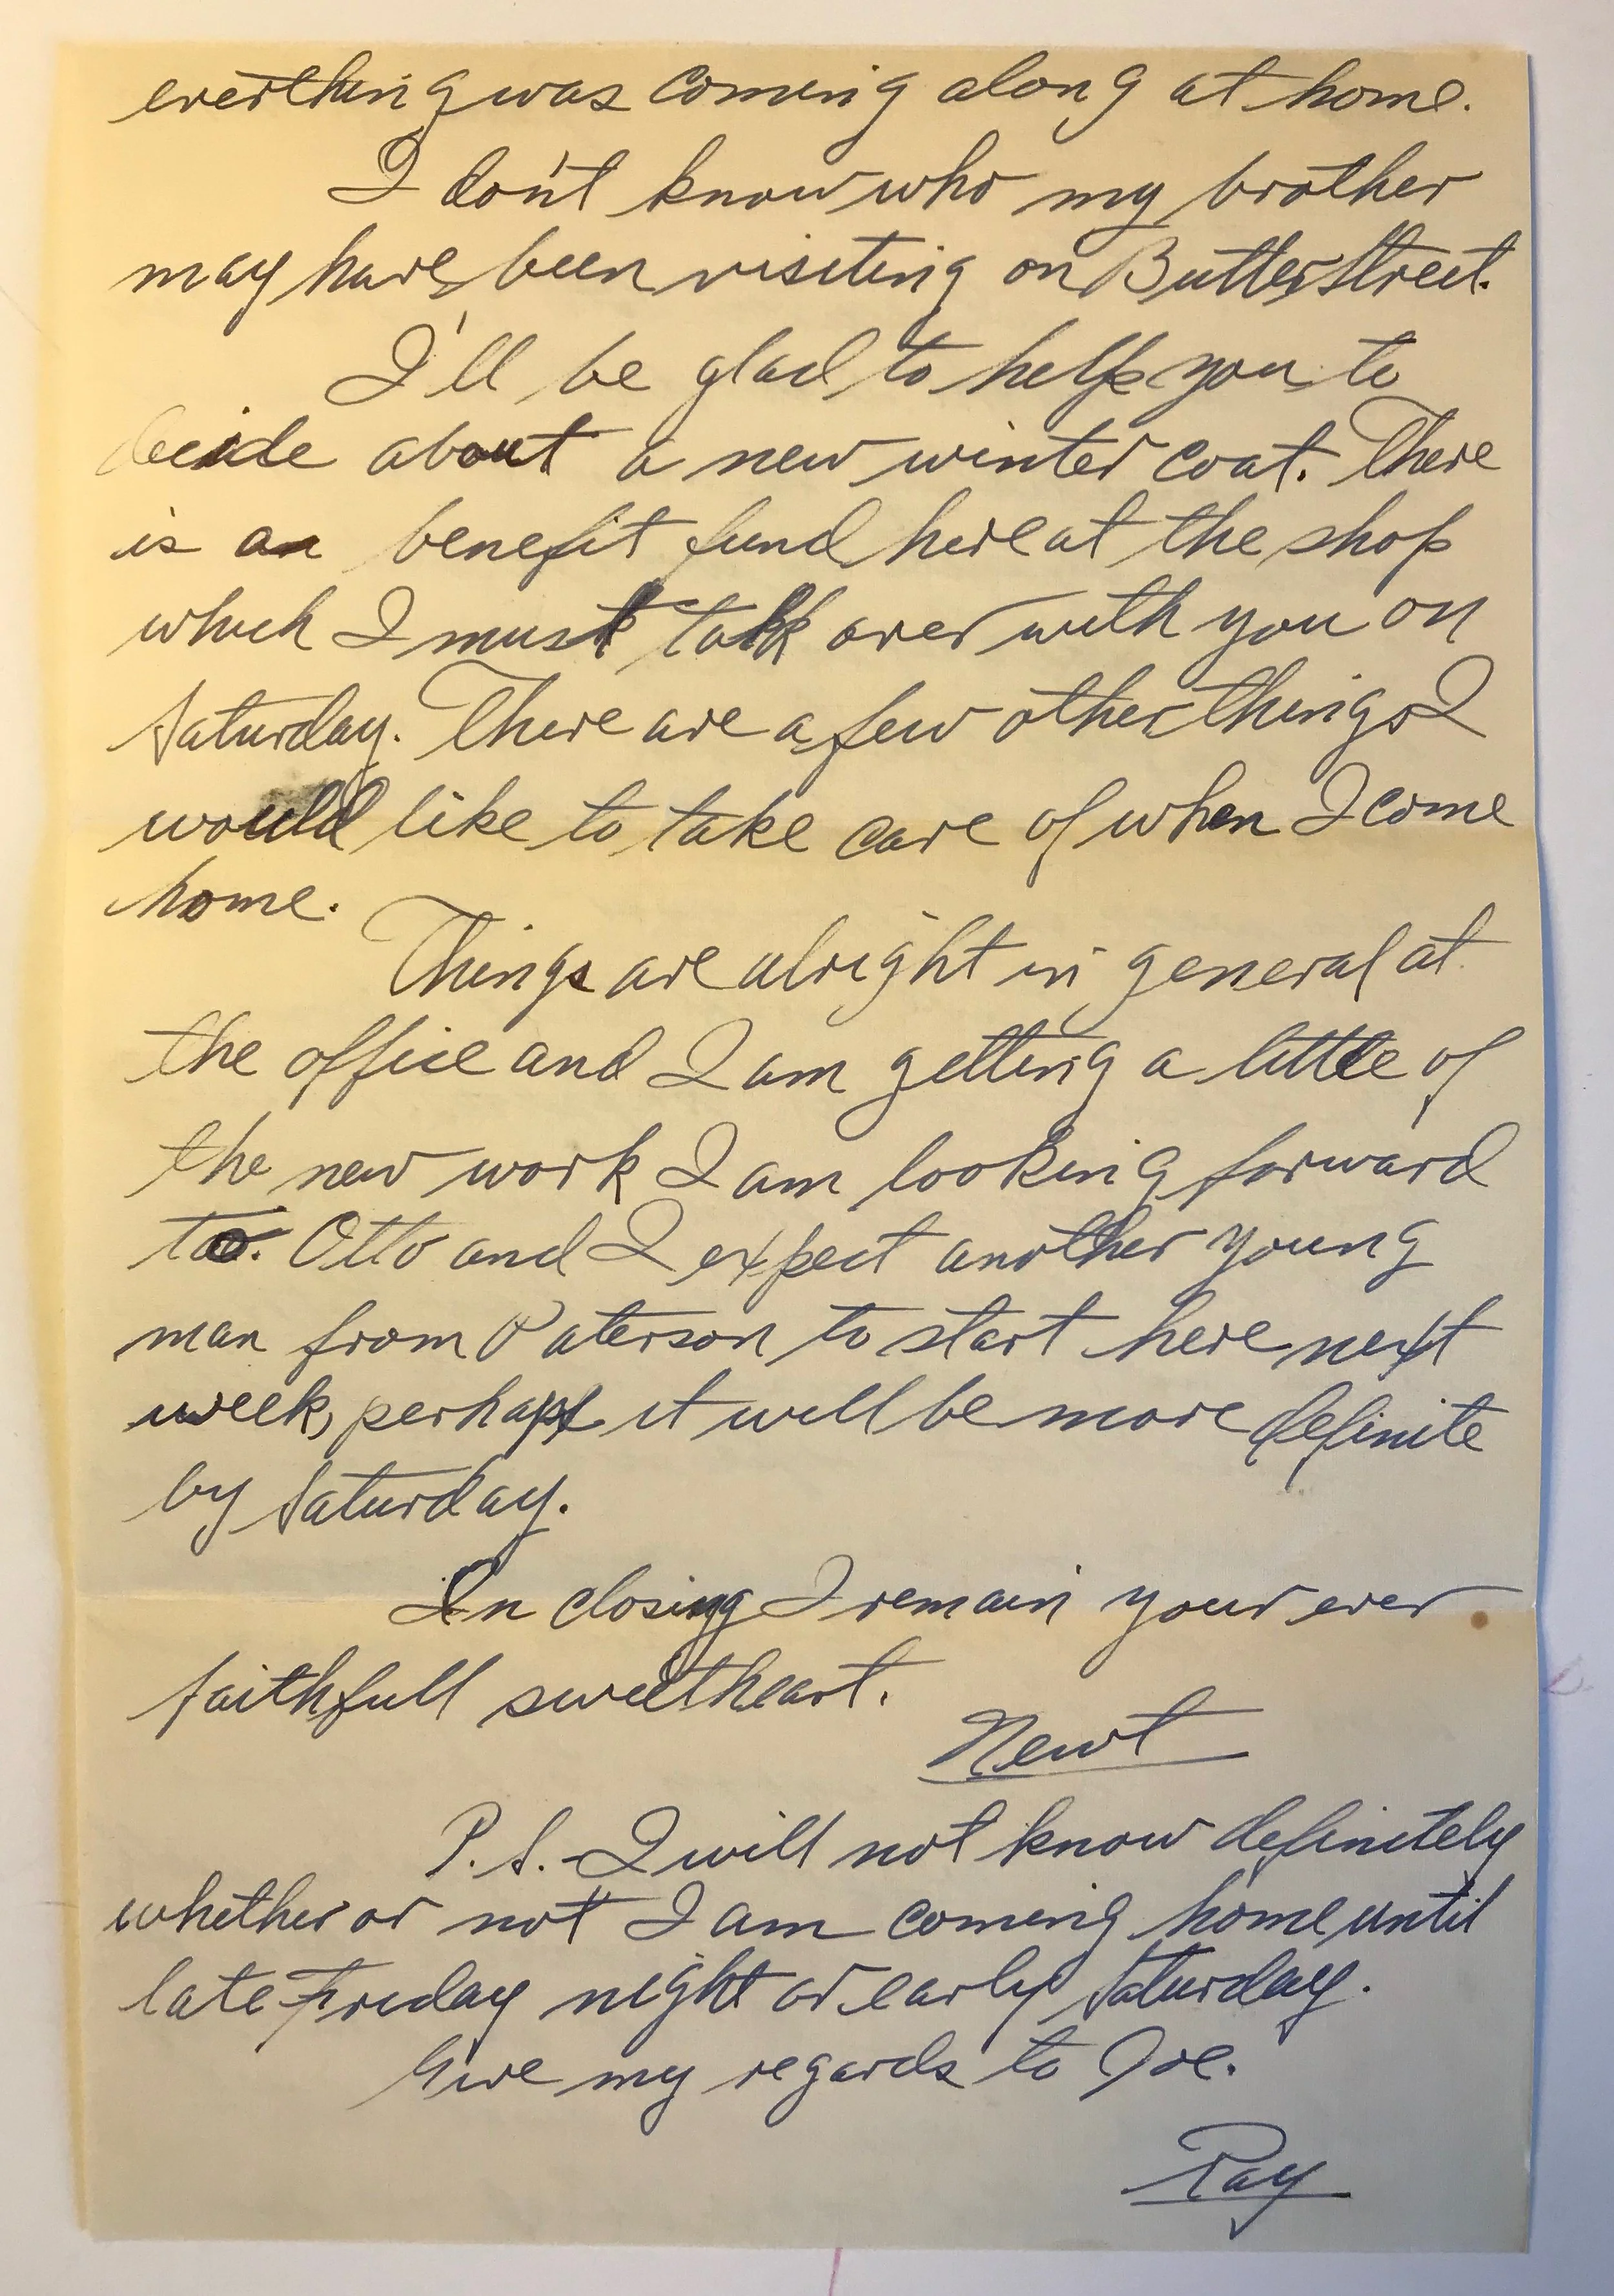 everthing was coming along at home.
I don't know who my brother
may have been visiting on Butler Street.
I'll be glad to help you to
decide about a new winter coat. There
is an benefit fund here at the shop
which I must talk over with you on
Saturday. There are a few other things I
would like to take care of when I come
home.
Things are alright in general at
the office and I am getting a little of
the new work I am looking forward
to. Otto and I expect another young
man from Paterson to start here next
week, perhaps it will be more definite
by Saturday.
In closing I remain your ever
faithfull sweetheart.
Newt
P.S. - I will not know definitely
whether or not I am coming home until
late Friday night or early Saturday.
Give my regards to Joe.
Ray